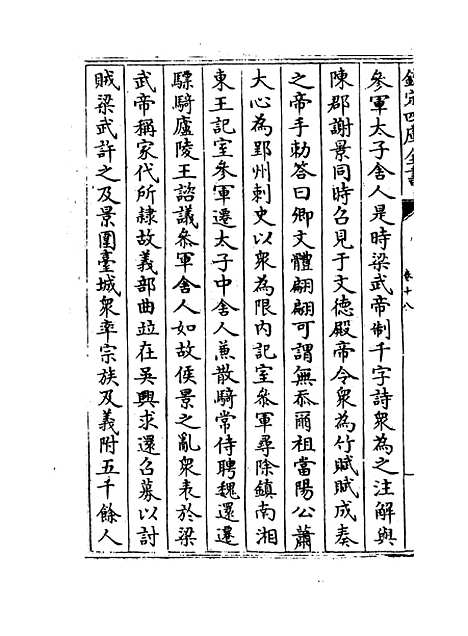 欽定四庫全書
卷十八
參軍太子舍人是時梁武帝制千字詩衆為之注解與
陳郡謝景同時召見于文德殿帝令衆為竹賦賦成奏
之帝手勅答曰卿文體翩翩可謂無忝爾祖當陽公蕭
大心為郢州刺史以衆為限內記室參軍尋除鎮南湘
東王記室參軍遷太子中舍人兼散騎常侍聘魏還遷
驃騎廬陵王諮議參軍舍人如故侯景之亂衆表於梁
武帝稱家代所隸故義部曲竝在吳興求還召募以討
賊梁武許之及景圍臺城衆率宗族及義附五千餘人